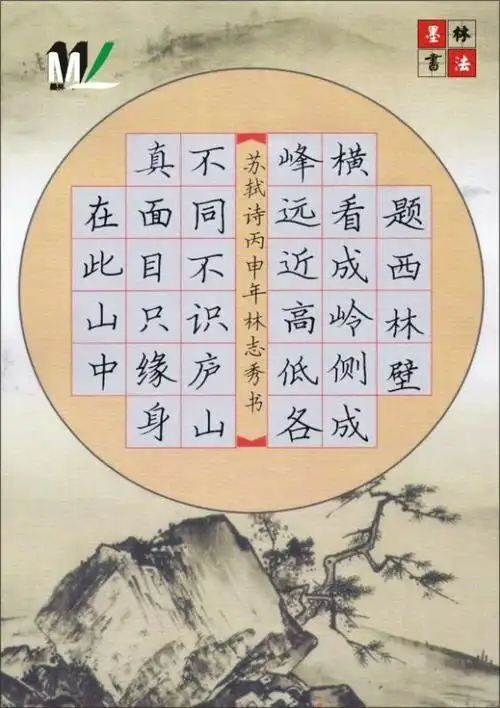 题西林壁
横看成岭侧成
峰远近高低各
苏轼诗丙申年林志秀书
不同不识庐山
真面目只缘身
在此山中
墨林
書法
ML